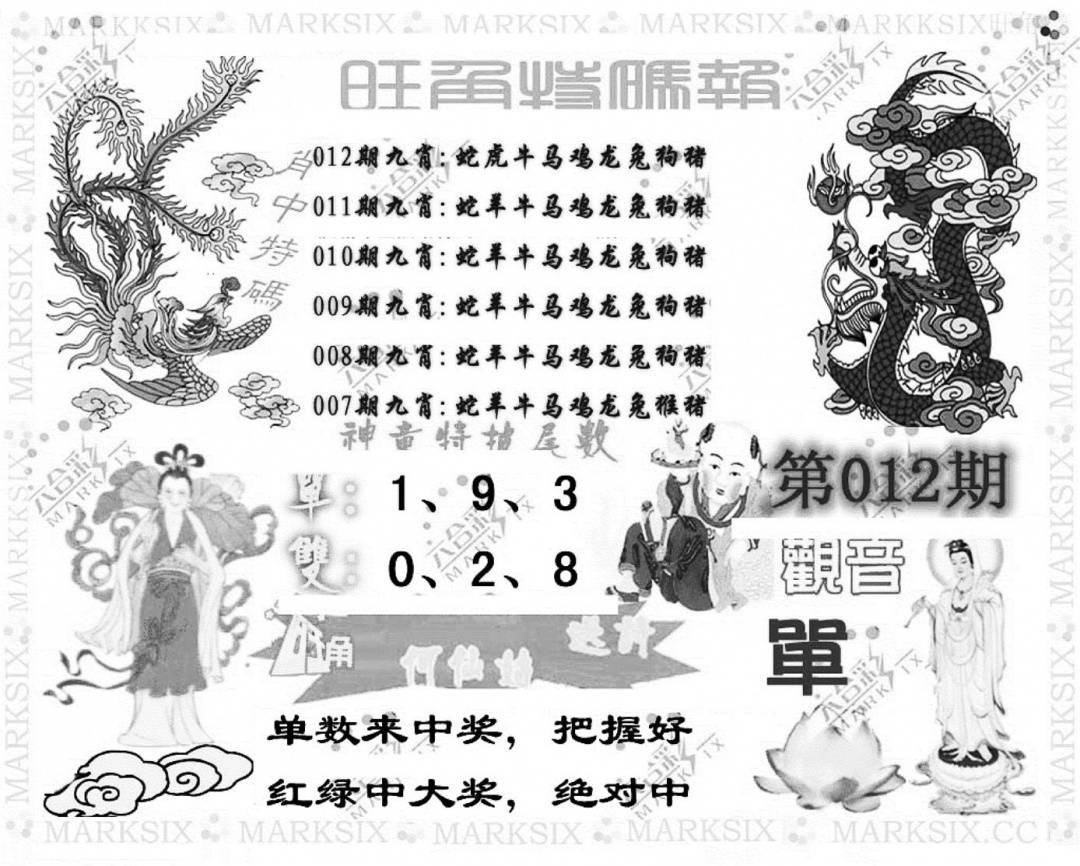 MARKSIX MARKKSIX MARKSIX MARKSIX MARKKSIX
旺角特碼報
肖中特碼
012期九肖:蛇虎牛马鸡龙兔狗猪
011期九肖:蛇羊牛马鸡龙兔狗猪
010期九肖:蛇羊牛马鸡龙兔狗猪
009期九肖:蛇羊牛马鸡龙兔狗猪
008期九肖:蛇羊牛马鸡龙兔狗猪
007期九肖:蛇羊牛马鸡龙兔猴猪
神童特抽尾數
第012期
單：1、9、3
雙：0、2、8
觀音
單
旺角
何仙姑
单数来中奖，把握好
红绿中大奖，绝对中
MARKSIX MARKSIX MARKSIX MARKSIX MARKSIX.CC